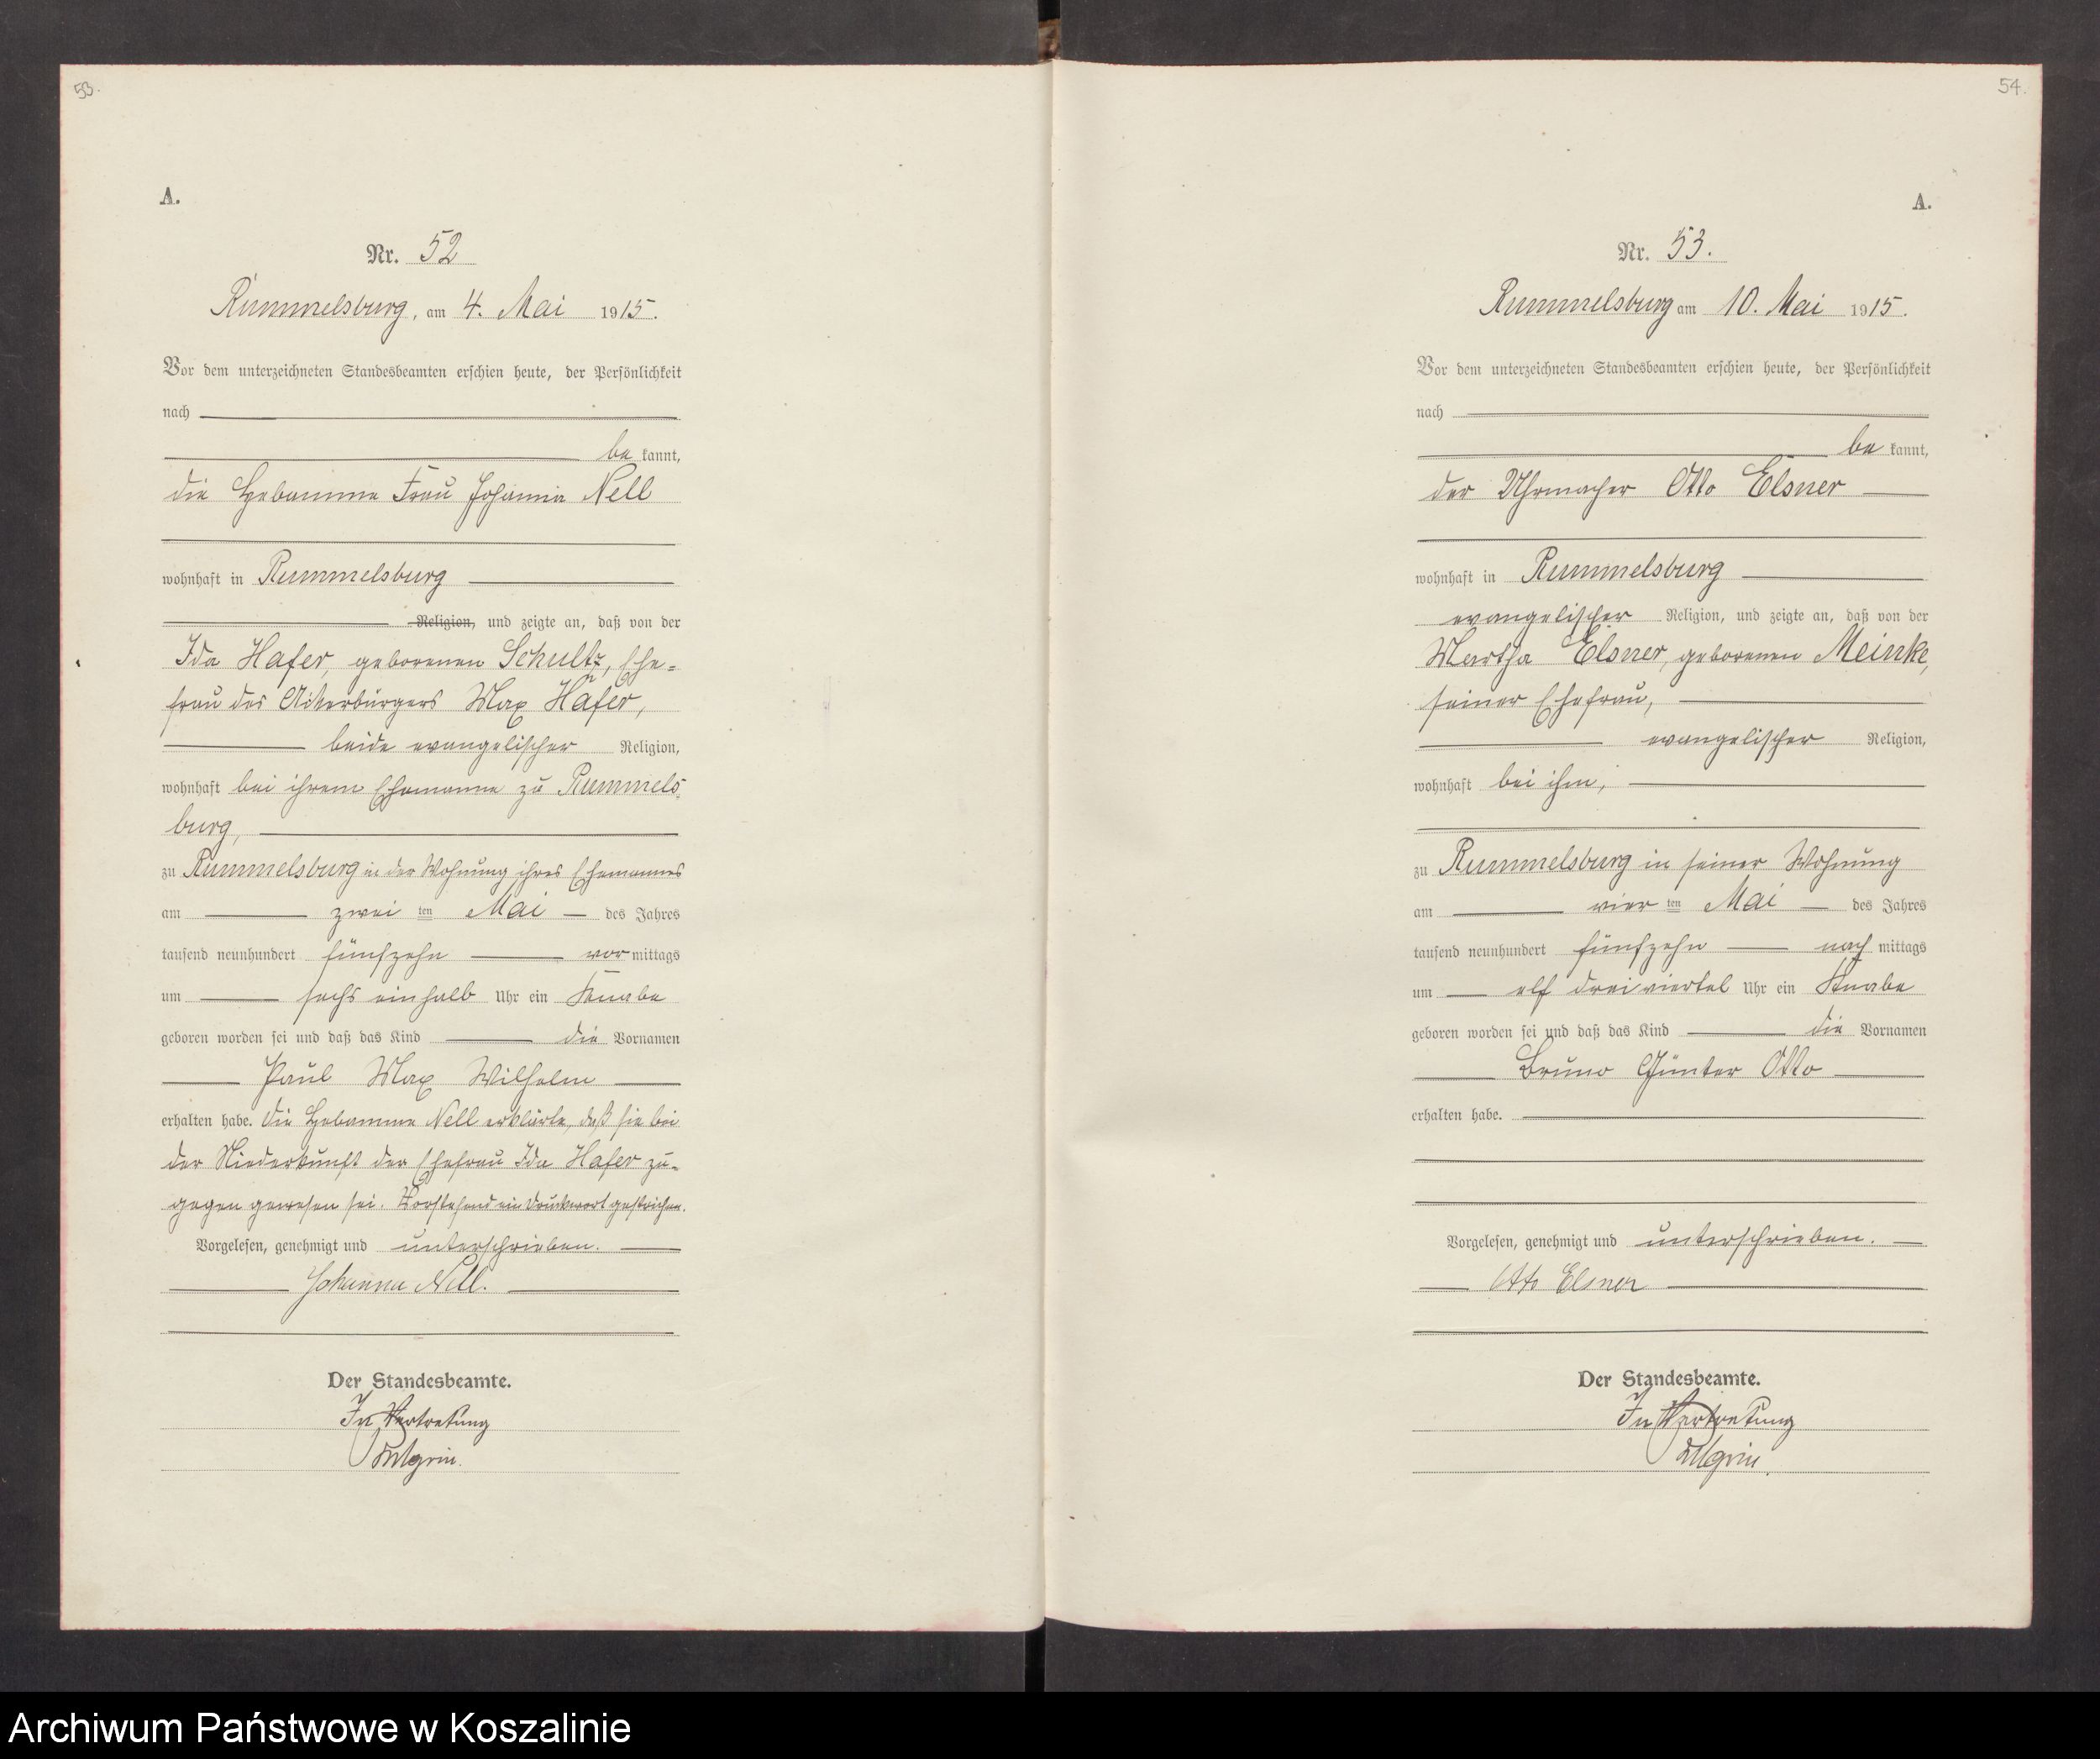 53.
A.
Nr. 52
Rummelsburg, am 4. Mai 1915.
Vor dem unterzeichneten Standesbeamten erschien heute, der Persönlichkeit
nach
be kannt,
die Hebamme Frau Johanna Nell
wohnhaft in Rummelsburg
Religion, und zeigte an, daß von der
Ida Hafer, geborenen Schultz, Ehe-
frau des Ackerbürgers Max Hafer,
beide evangelischer Religion,
wohnhaft bei ihrem Ehemanne zu Rummels-
burg,
zu Rummelsburg in der Wohnung ihres Ehemannes
am zwei ten Mai des Jahres
tausend neunhundert fünfzehn vor mittags
um sechs einhalb Uhr ein Knabe
geboren worden sei und daß das Kind die Vornamen
Paul Max Wilhelm
erhalten habe. Die Hebamme Nell erklärte, daß sie bei
der Niederkunft der Ehefrau Ida Hafer zu-
gegen gewesen sei. Vorstehend ein Druckwort gestrichen.
Vorgelesen, genehmigt und unterschrieben.
Johanna Nell.
Der Standesbeamte.
In Vertretung
54.
A.
Nr. 53.
Rummelsburg am 10. Mai 1915.
Vor dem unterzeichneten Standesbeamten erschien heute, der Persönlichkeit
nach
be kannt,
der Uhrmacher Otto Elsner
wohnhaft in Rummelsburg
evangelischer Religion, und zeigte an, daß von der
Martha Elsner, geborenen Meinke,
seiner Ehefrau,
evangelischer Religion,
wohnhaft bei ihm,
zu Rummelsburg in seiner Wohnung
am vier ten Mai des Jahres
tausend neunhundert fünfzehn nach mittags
um elf dreiviertel Uhr ein Knabe
geboren worden sei und daß das Kind die Vornamen
Bruno Günter Otto
erhalten habe.
Vorgelesen, genehmigt und unterschrieben.
Otto Elsner
Der Standesbeamte.
In Vertretung
Archiwum Państwowe w Koszalinie